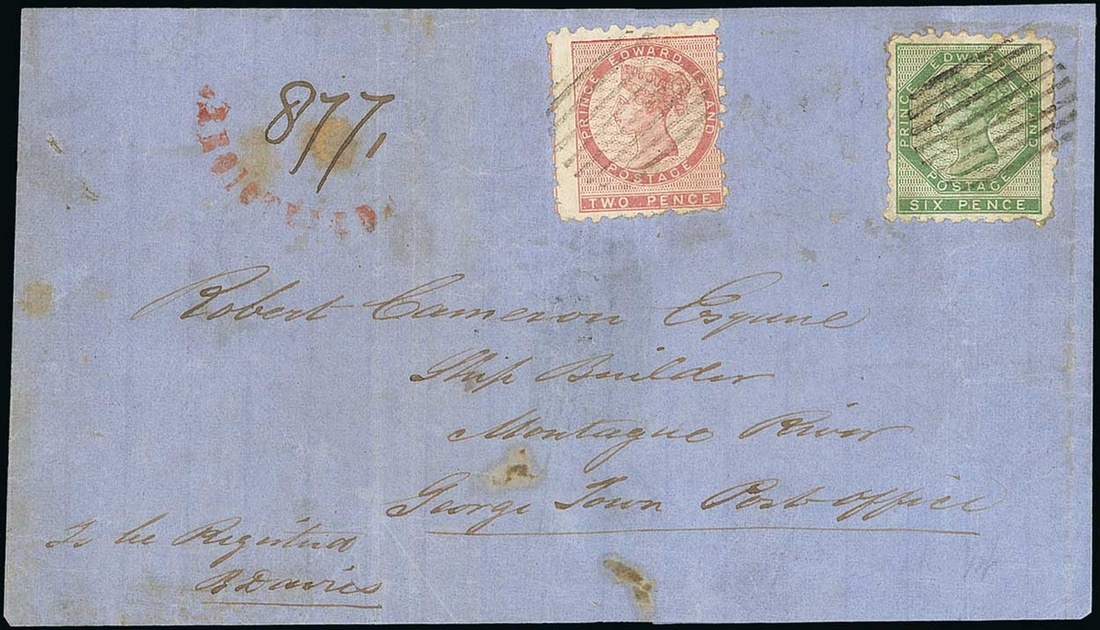 877,
REGISTERED
PRINCE EDWARD ISLAND
POSTAGE
TWO PENCE
PRINCE EDWARD ISLAND
POSTAGE
SIX PENCE
Robert Cameron Esquire
Ship Builder
Montague River
George Town Post office
To be Registered
B Davies